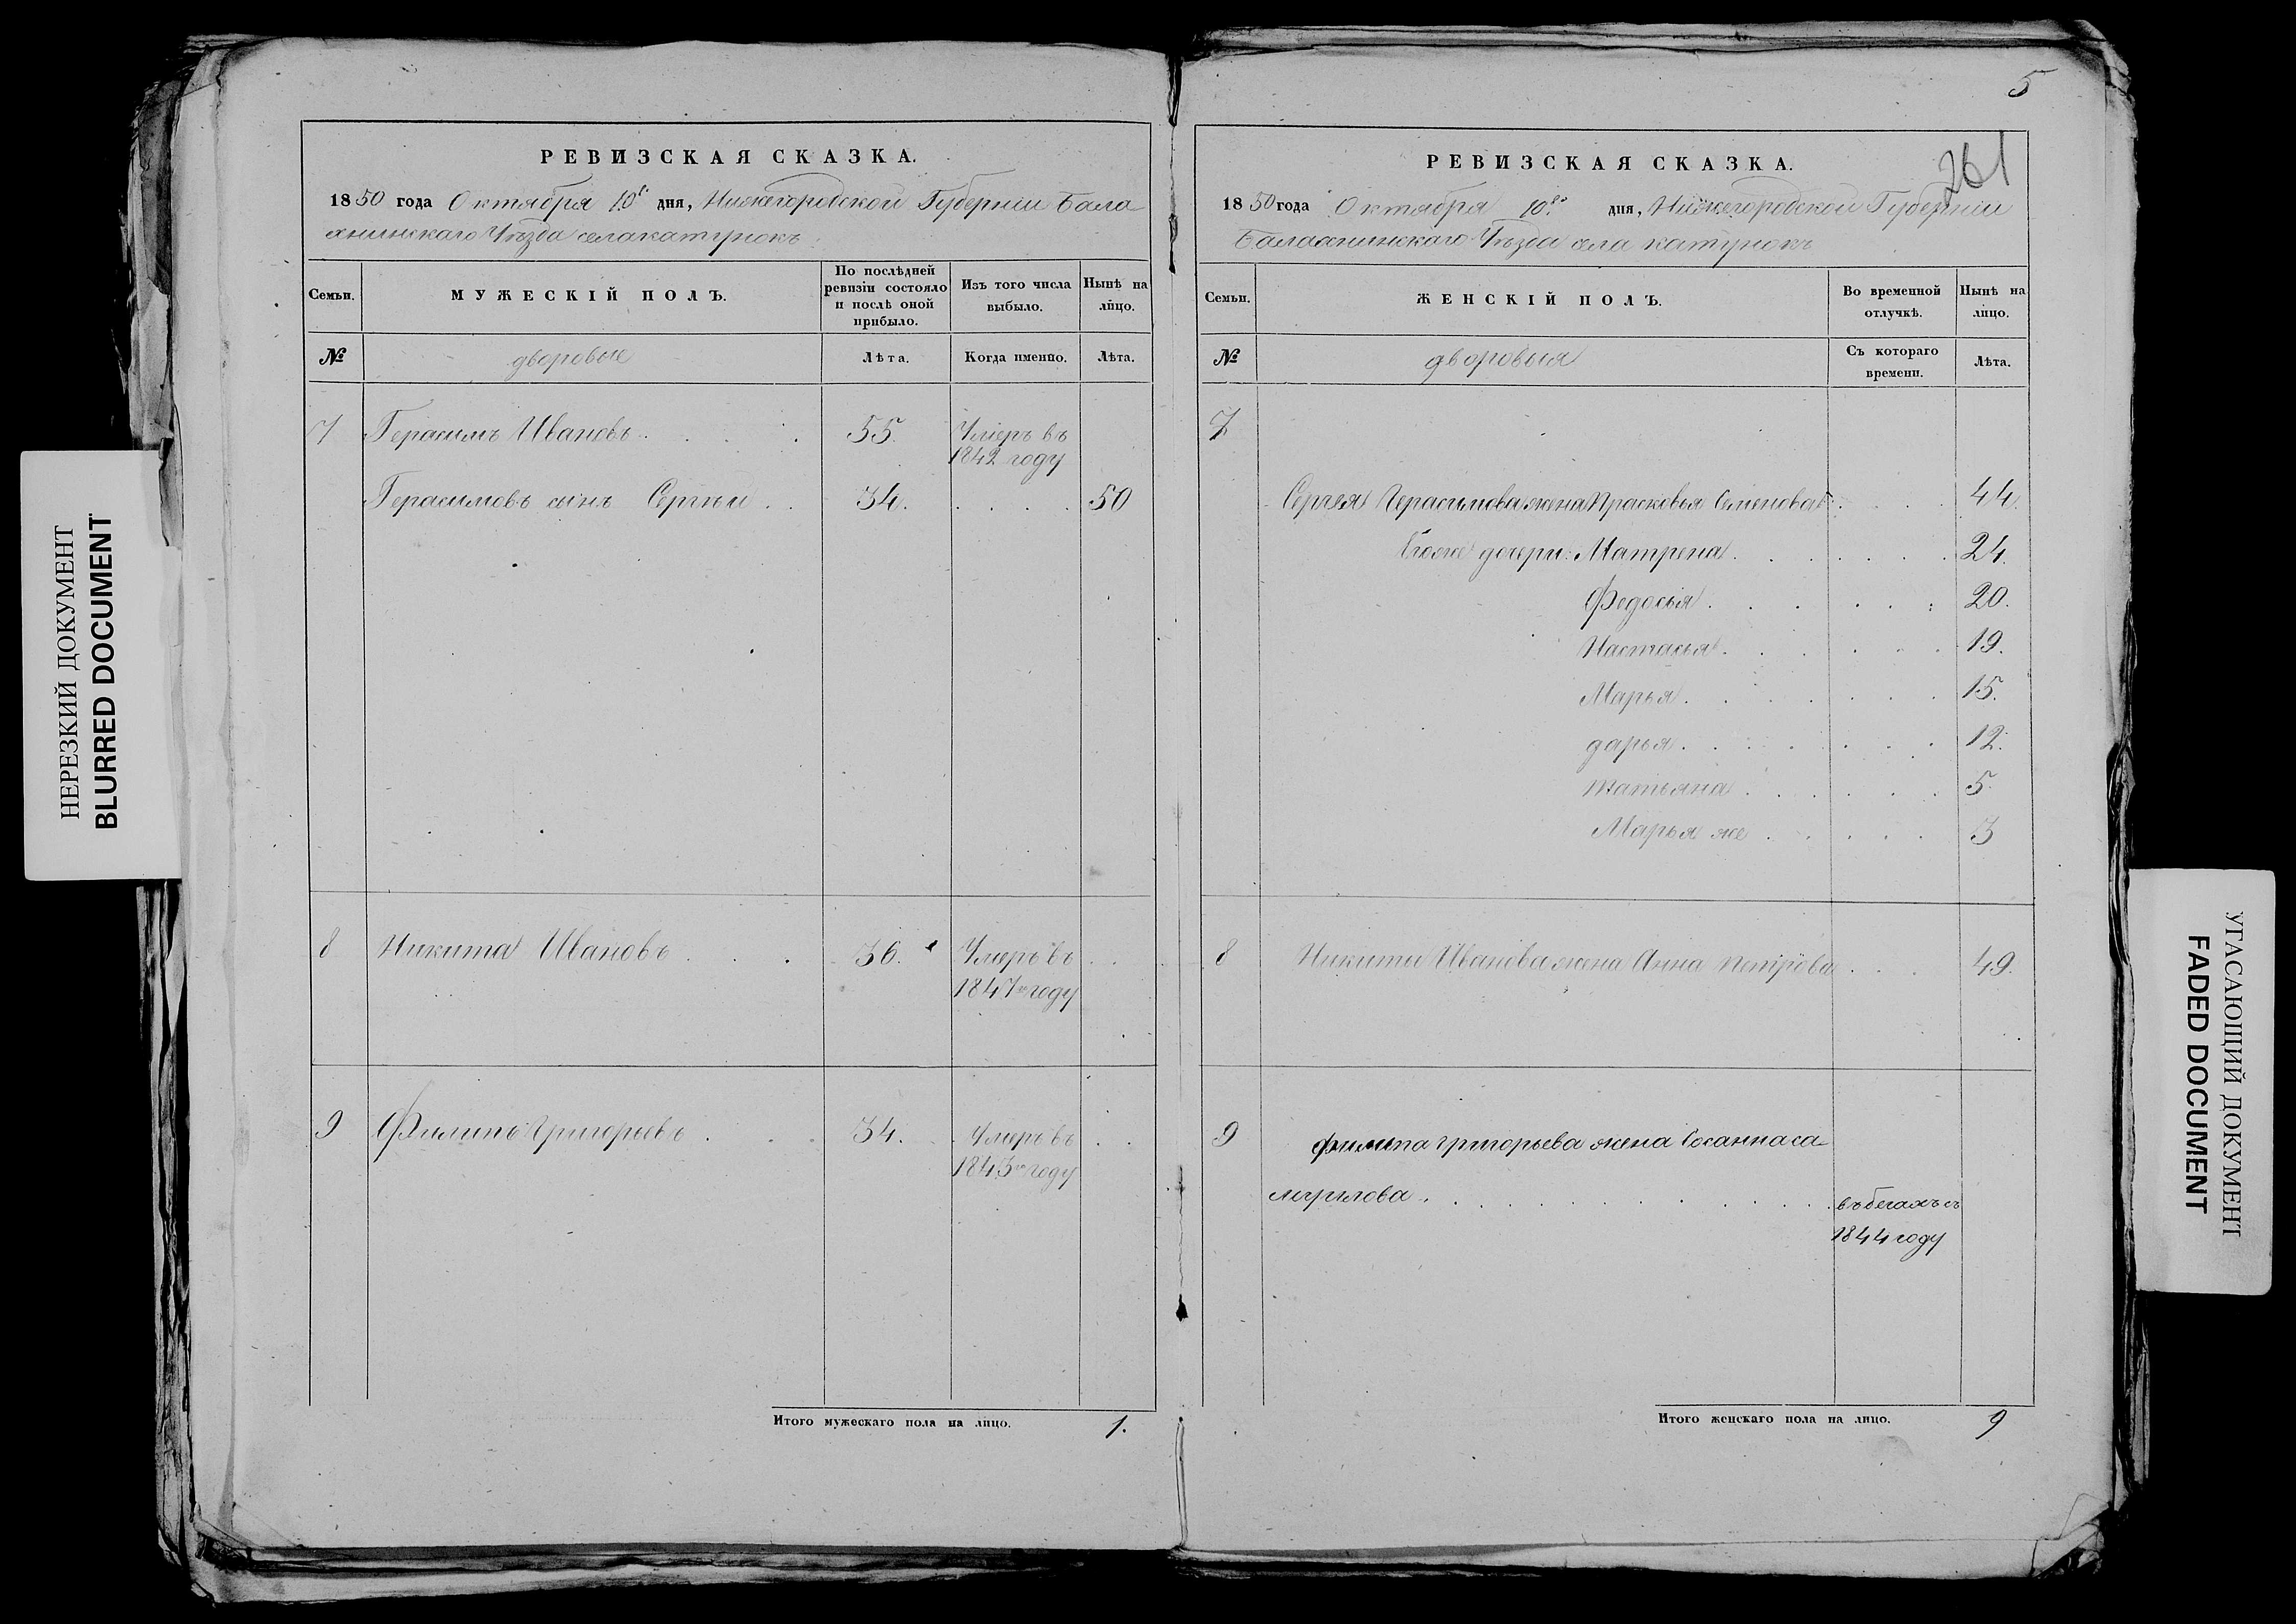 РЕВИЗСКАЯ СКАЗКА.
1850 года Октября 10го дня, Нижегородской Губерніи Бала
хнинскаго Уѣзда села катунокъ
Семьи.
МУЖЕСКІЙ ПОЛЪ.
По послѣдней ревизіи состояло и послѣ оной прибыло.
Изъ того числа выбыло.
Нынѣ на лицо.
№
дворовые
Лѣта.
Когда именно.
Лѣта.
7 Герасимъ Ивановъ . . . . 55. Умеръ въ
1842 году
Герасимовъ сынъ Сергѣй . . 34. . . . . 50
8 Никита Ивановъ . . . 36. Умеръ въ . .
1847м году
9 Филипъ Григорьевъ . . . 34. Умеръ въ . .
1843м году
Итого мужескаго пола на лицо. 1.
5
261
РЕВИЗСКАЯ СКАЗКА.
1850 года Октября 10го дня, Нижегородской Губерніи
Балахнинскаго Уѣзда села катунокъ
Семьи.
ЖЕНСКІЙ ПОЛЪ.
Во временной отлучкѣ.
Нынѣ на лицо.
№
дворовыя
Съ котораго времени.
Лѣта.
7
Сергея Герасимова жена Прасковья Семенова . . . . 44.
Егоже дочери: Матрена . . . . . . 24.
Федосья . . . . . . 20.
Настасья . . . . . . 19.
Марья . . . . . . 15.
дарья . . . . . . 12.
татьяна . . . . . . 5.
Марья же . . . . . 3
8 Никиты Иванова жена Анна петрова . . . 49.
9 филипа григорьева жена Сосанна са-
мурилова . . . . . . . . . въ бегахъ съ
1844 году
Итого женскаго пола на лицо. 9
НЕРЕЗКИЙ ДОКУМЕНТ
BLURRED DOCUMENT
УГАСАЮЩИЙ ДОКУМЕНТ
FADED DOCUMENT